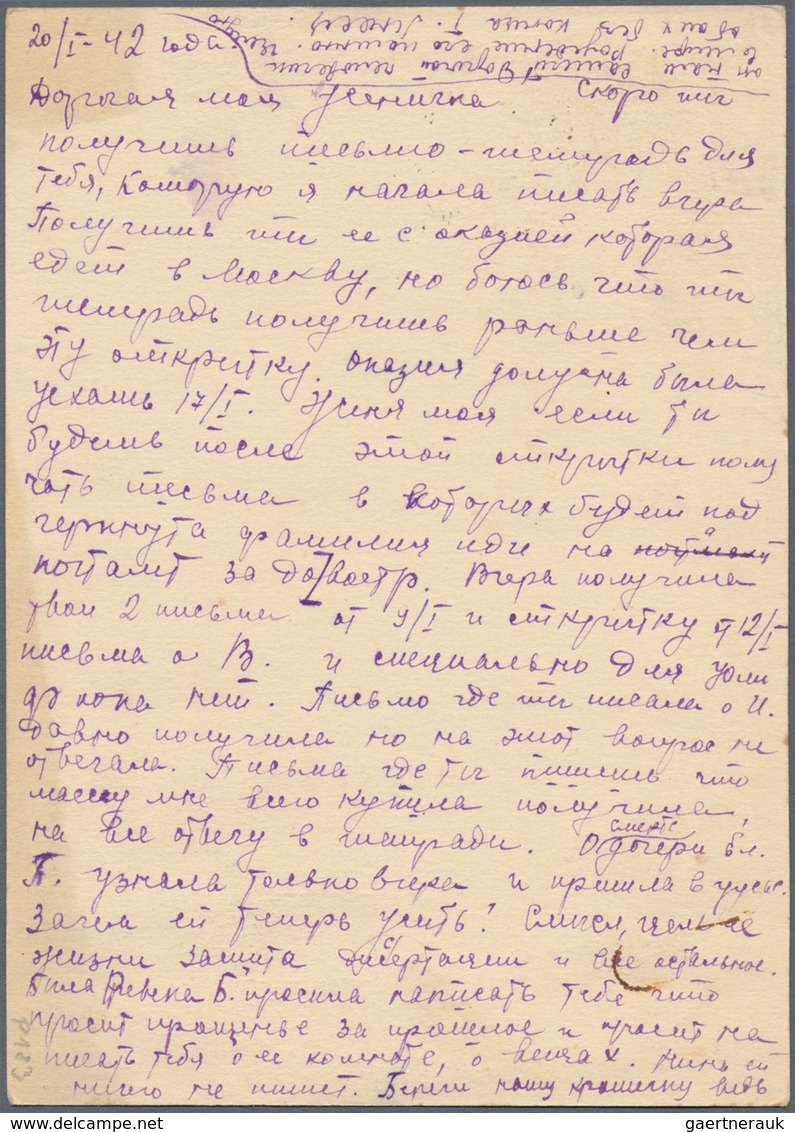 20/I-42 года
Дорогая моя Женичка. Скоро ты
получишь письмо-тетрадь для
тебя, которую я начала писать вчера
Получишь ты ее с оказией которая
едет в Москву, но боюсь что ты
тетрадь получишь раньше чем
эту открытку. Оказия должна была
уехать 17/I. Женя моя если ты
будешь после этой открытки полу
чать письма в которых будет под
черкнута фамилия иди на
почтамт за до востр. Вчера получила
твои 2 письма от 9/I и открытку от 12/I
письма о В. и специально для
пока нет. Письмо где ты писала о И.
давно получила но на этот вопрос не
отвечала. Письма где ты пишешь что
массу мне всего купила получила,
на все отвечу в тетради. О смерте дочери бл.
П. узнала только вчера и пришла в ужас.
Зачем ей теперь жить! Смысл, цель ее
жизни защита дисертации и все остальное.
Была Ревека Б. просила написать тебе что
просит прощенье за прошлое и просит на
писать тебя о ее комнате, о вещах. ей
ничего не пишет. Береги нашу крошечку ведь
он папи вашей дорогой человечек
в мире. его целую
обоих без конца
P183
gaertnerauk